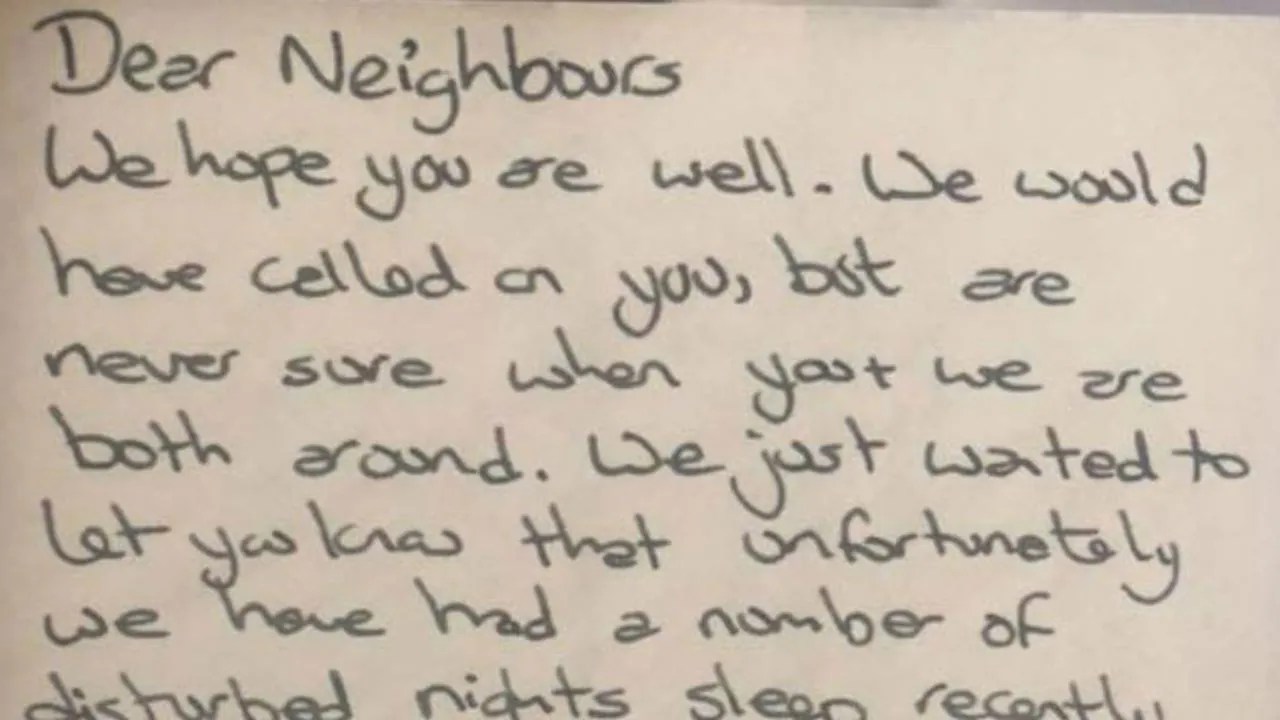 Dear Neighbours
We hope you are well. We would
have called on you, but are
never sure when you + we are
both around. We just wanted to
let you know that unfortunately
we have had a number of
disturbed nights sleep recently